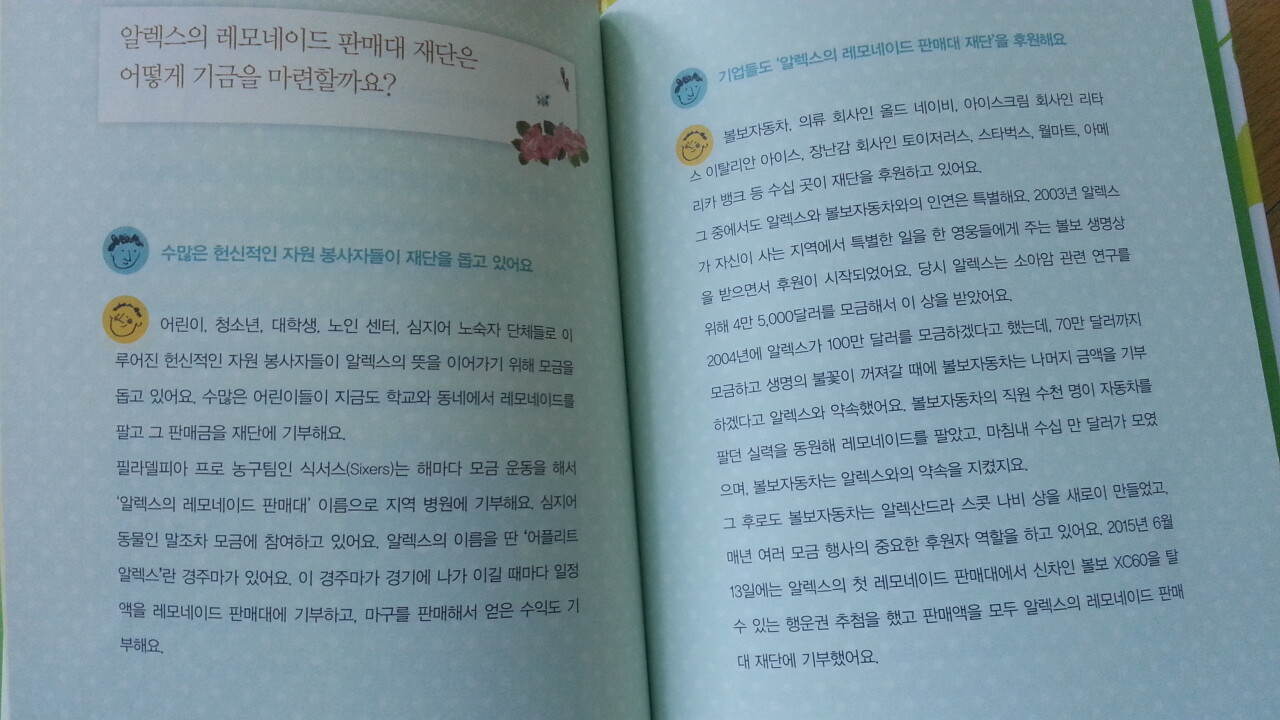 알렉스의 레모네이드 판매대 재단은
어떻게 기금을 마련할까요?
수많은 헌신적인 자원 봉사자들이 재단을 돕고 있어요
어린이, 청소년, 대학생, 노인 센터, 심지어 노숙자 단체들로 이
루어진 헌신적인 자원 봉사자들이 알렉스의 뜻을 이어가기 위해 모금을
돕고 있어요. 수많은 어린이들이 지금도 학교와 동네에서 레모네이드를
팔고 그 판매금을 재단에 기부해요.
필라델피아 프로 농구팀인 식서스(Sixers)는 해마다 모금 운동을 해서
‘알렉스의 레모네이드 판매대’ 이름으로 지역 병원에 기부해요. 심지어
동물인 말조차 모금에 참여하고 있어요. 알렉스의 이름을 딴 ‘어플리트
알렉스’란 경주마가 있어요. 이 경주마가 경기에 나가 이길 때마다 일정
액을 레모네이드 판매대에 기부하고, 마구를 판매해서 얻은 수익도 기
부해요.
기업들도 ‘알렉스의 레모네이드 판매대 재단’을 후원해요
볼보자동차, 의류 회사인 올드 네이비, 아이스크림 회사인 리타
스 이탈리안 아이스, 장난감 회사인 토이저러스, 스타벅스, 월마트, 아메
리카 뱅크 등 수십 곳이 재단을 후원하고 있어요.
그 중에서도 알렉스와 볼보자동차와의 인연은 특별해요. 2003년 알렉스
가 자신이 사는 지역에서 특별한 일을 한 영웅들에게 주는 볼보 생명상
을 받으면서 후원이 시작되었어요. 당시 알렉스는 소아암 관련 연구를
위해 4만 5,000달러를 모금해서 이 상을 받았어요.
2004년에 알렉스가 100만 달러를 모금하겠다고 했는데, 70만 달러까지
모금하고 생명의 불꽃이 꺼져갈 때에 볼보자동차는 나머지 금액을 기부
하겠다고 알렉스와 약속했어요. 볼보자동차의 직원 수천 명이 자동차를
팔던 실력을 동원해 레모네이드를 팔았고, 마침내 수십 만 달러가 모였
으며, 볼보자동차는 알렉스와의 약속을 지켰지요.
그 후로도 볼보자동차는 알렉산드라 스콧 나비 상을 새로이 만들었고,
매년 여러 모금 행사의 중요한 후원자 역할을 하고 있어요. 2015년 6월
13일에는 알렉스의 첫 레모네이드 판매대에서 신차인 볼보 XC60을 탈
수 있는 행운권 추첨을 했고 판매액을 모두 알렉스의 레모네이드 판매
대 재단에 기부했어요.